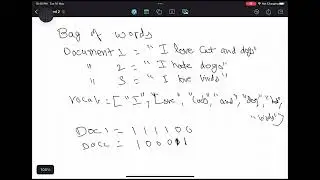 Bag of words
Document 1 = "I love Cat and dogs"
" 2 = "I hate dogs"
" 3 = "I love birds"
vocab = ["I", "Love", "Cats", "and", "dogs",
"birds"]
Doc 1 = 1 1 1 1 0 0
Doc 2 = 1 0 0 0
100%